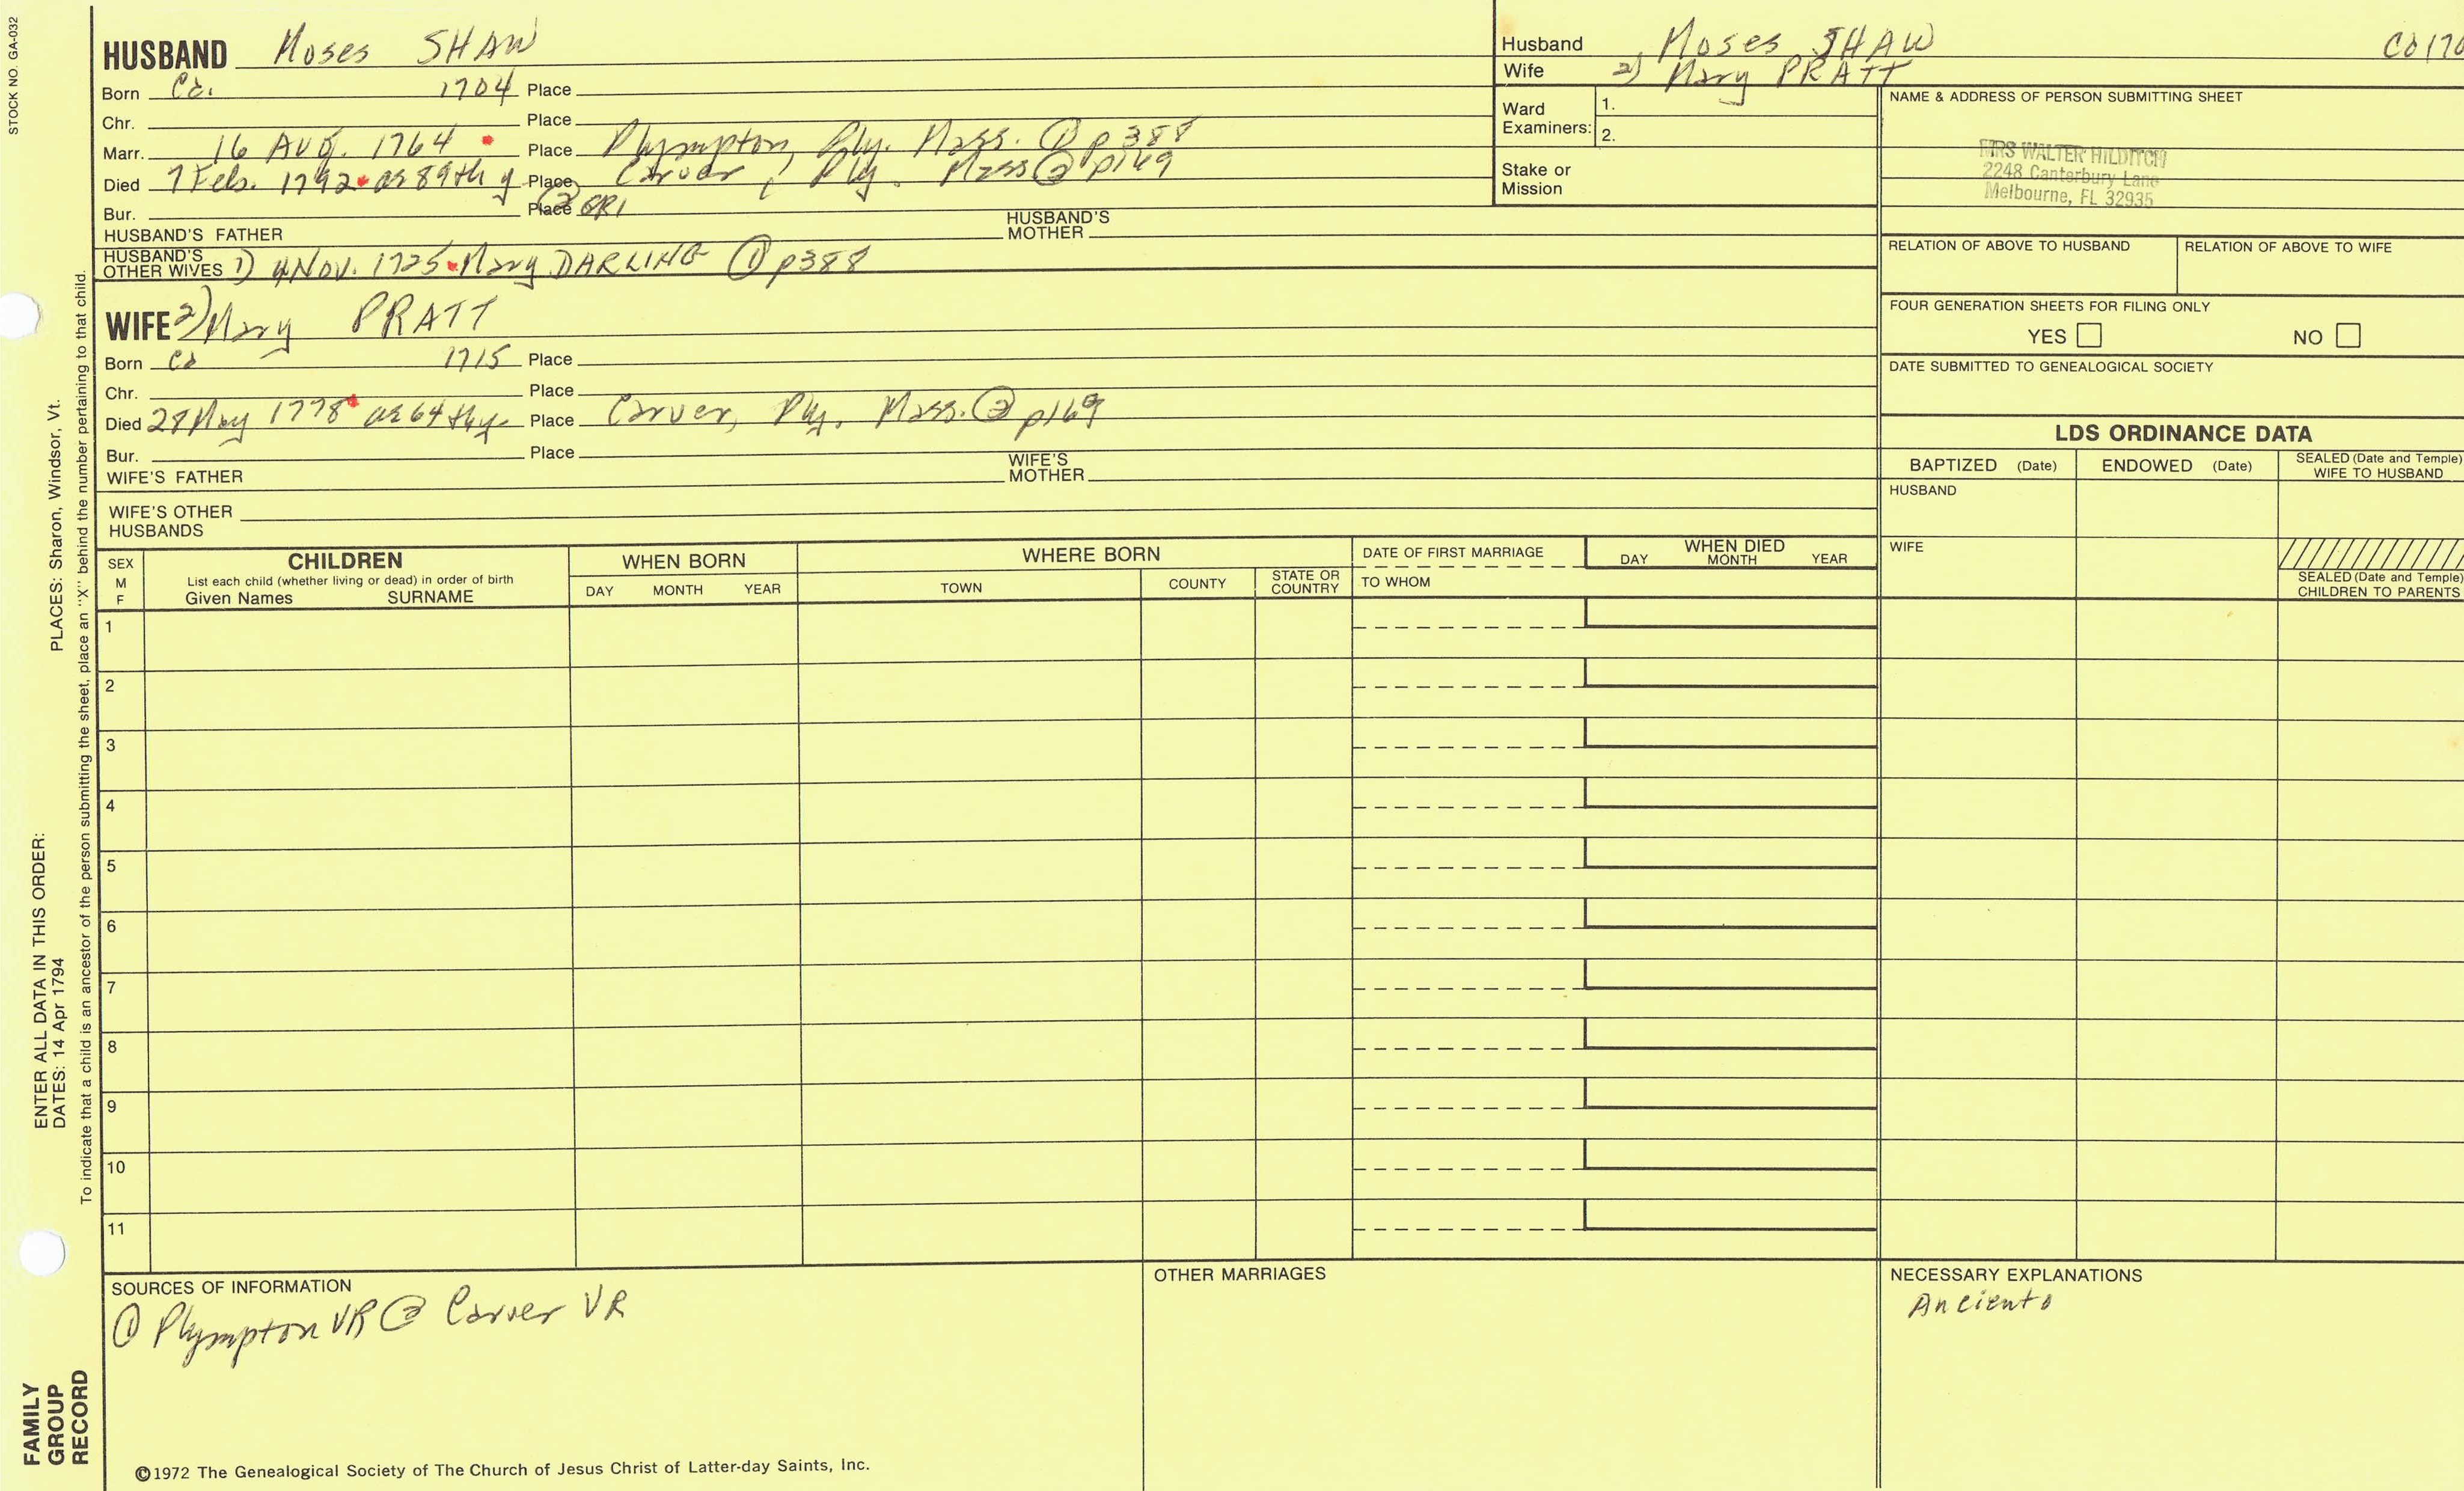 STOCK NO. GA-032
HUSBAND Moses SHAW
Born Ca. 1704 Place
Chr. Place
Marr. 16 AUG. 1764 Place Plympton, Ply. Mass. ① p388
Died 7 Feb. 1792 as 89th y Place Carver, Ply. Mass ② p169
Bur. Place ② GR1
HUSBAND'S FATHER HUSBAND'S MOTHER
HUSBAND'S OTHER WIVES 1) 4 NOV. 1725 Mary DARLING ① p388
WIFE 2) Mary PRATT
Born Ca 1715 Place
Chr. Place
Died 28 May 1778 as 64th y Place Carver, Ply. Mass. ② p169
Bur. Place
WIFE'S FATHER WIFE'S MOTHER
WIFE'S OTHER HUSBANDS
Husband Moses SHAW Ca 170
Wife 2) Mary PRATT
Ward Examiners: 1.
2.
Stake or Mission
NAME & ADDRESS OF PERSON SUBMITTING SHEET
MRS WALTER HILDITCH
2248 Canterbury Lane
Melbourne, FL 32935
RELATION OF ABOVE TO HUSBAND RELATION OF ABOVE TO WIFE
FOUR GENERATION SHEETS FOR FILING ONLY
YES NO
DATE SUBMITTED TO GENEALOGICAL SOCIETY
LDS ORDINANCE DATA
BAPTIZED (Date) ENDOWED (Date) SEALED (Date and Temple) WIFE TO HUSBAND
HUSBAND
WIFE
SEALED (Date and Temple) CHILDREN TO PARENTS
SEX M F
CHILDREN
List each child (whether living or dead) in order of birth
Given Names SURNAME
WHEN BORN
DAY MONTH YEAR
WHERE BORN
TOWN COUNTY STATE OR COUNTRY
DATE OF FIRST MARRIAGE
TO WHOM
WHEN DIED
DAY MONTH YEAR
1
2
3
4
5
6
7
8
9
10
11
SOURCES OF INFORMATION
① Plympton VR ② Carver VR
OTHER MARRIAGES
NECESSARY EXPLANATIONS
Ancients
©1972 The Genealogical Society of The Church of Jesus Christ of Latter-day Saints, Inc.
FAMILY
GROUP
RECORD
ENTER ALL DATA IN THIS ORDER:
DATES: 14 Apr 1794 PLACES: Sharon, Windsor, Vt.
To indicate that a child is an ancestor of the person submitting the sheet, place an "X" behind the number pertaining to that child.